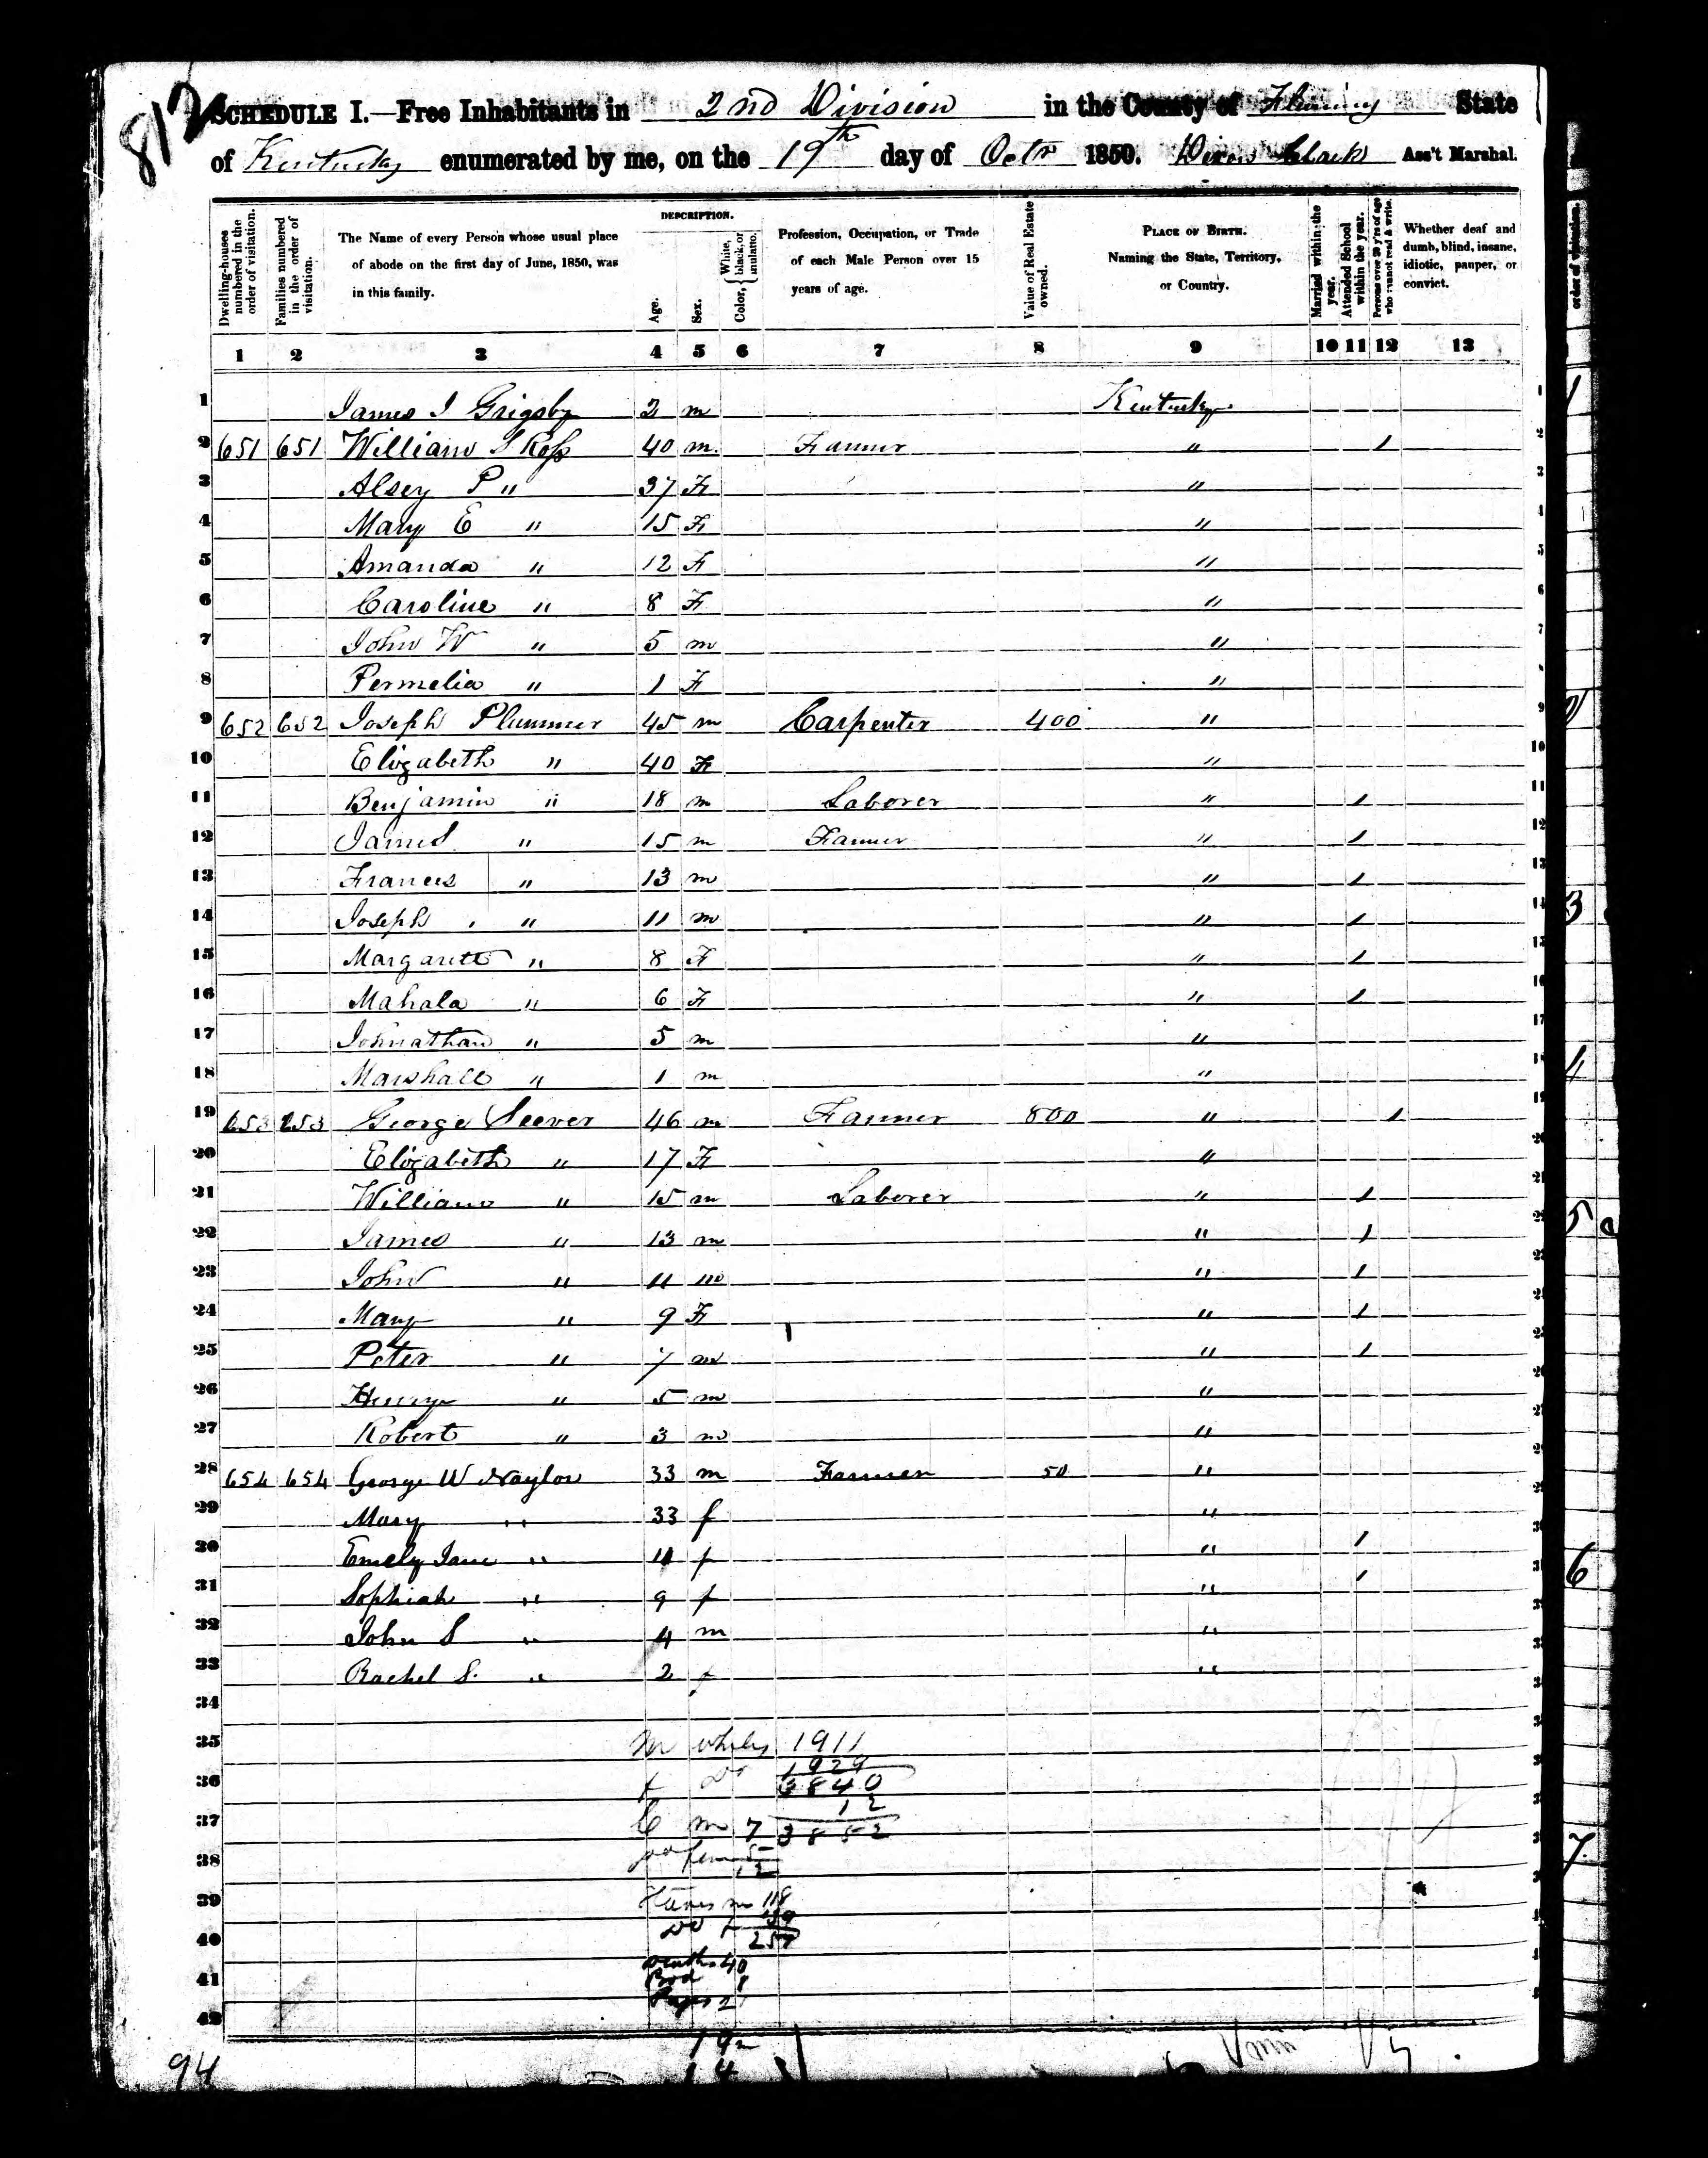 812
SCHEDULE I.—Free Inhabitants in 2nd Division in the County of Fleming State
of Kentucky enumerated by me, on the 19th day of Octr 1850. Ass't Marshal.
Dwelling-houses numbered in the order of visitation.
Families numbered in the order of visitation.
The Name of every Person whose usual place of abode on the first day of June, 1850, was in this family.
DESCRIPTION.
Age.
Sex.
Color, { White, black, or mulatto.
Profession, Occupation, or Trade of each Male Person over 15 years of age.
Value of Real Estate owned.
PLACE OF BIRTH. Naming the State, Territory, or Country.
Married within the year.
Attended School within the year.
Persons over 20 y'rs of age who cannot read & write.
Whether deaf and dumb, blind, insane, idiotic, pauper, or convict.
order of visitation.
1 2 3 4 5 6 7 8 9 10 11 12 13
1 James I Grigsby 2 m Kentucky
2 651 651 William S Ross 40 m Farmer " 1
3 Alsey P " 37 F "
4 Mary E " 15 F "
5 Amanda " 12 F "
6 Caroline " 8 F "
7 John W " 5 m "
8 Permelia " 1 F "
9 652 652 Joseph Plummer 45 m Carpenter 400 "
10 Elizabeth " 40 F "
11 Benjamin " 18 m Laborer " 1
12 James " 15 m Farmer " 1
13 Frances " 13 m " 1
14 Joseph " 11 m " 1
15 Margarett " 8 F " 1
16 Mahala " 6 F " 1
17 Johnathan " 5 m "
18 Marshall " 1 m "
19 653 653 George Seever 46 m Farmer 800 " 1
20 Elizabeth " 17 F "
21 William " 15 m Laborer " 1
22 James " 13 m " 1
23 John " 11 m " 1
24 Mary " 9 F " 1
25 Peter " 7 m " 1
26 Henry " 5 m "
27 Robert " 3 m "
28 654 654 George W Naylor 33 m Farmer 50 "
29 Mary " 33 f "
30 Emely Jane " 11 f " 1
31 Sophiah " 9 f " 1
32 John S " 4 m "
33 Rachel S. " 2 f "
34
35 m whites 1911
36 f do 1929
3840
12
37 C m 7 3852
38 do fem 5
12
39 m 118
40 do f 139
257
41 deaths 40
42
94